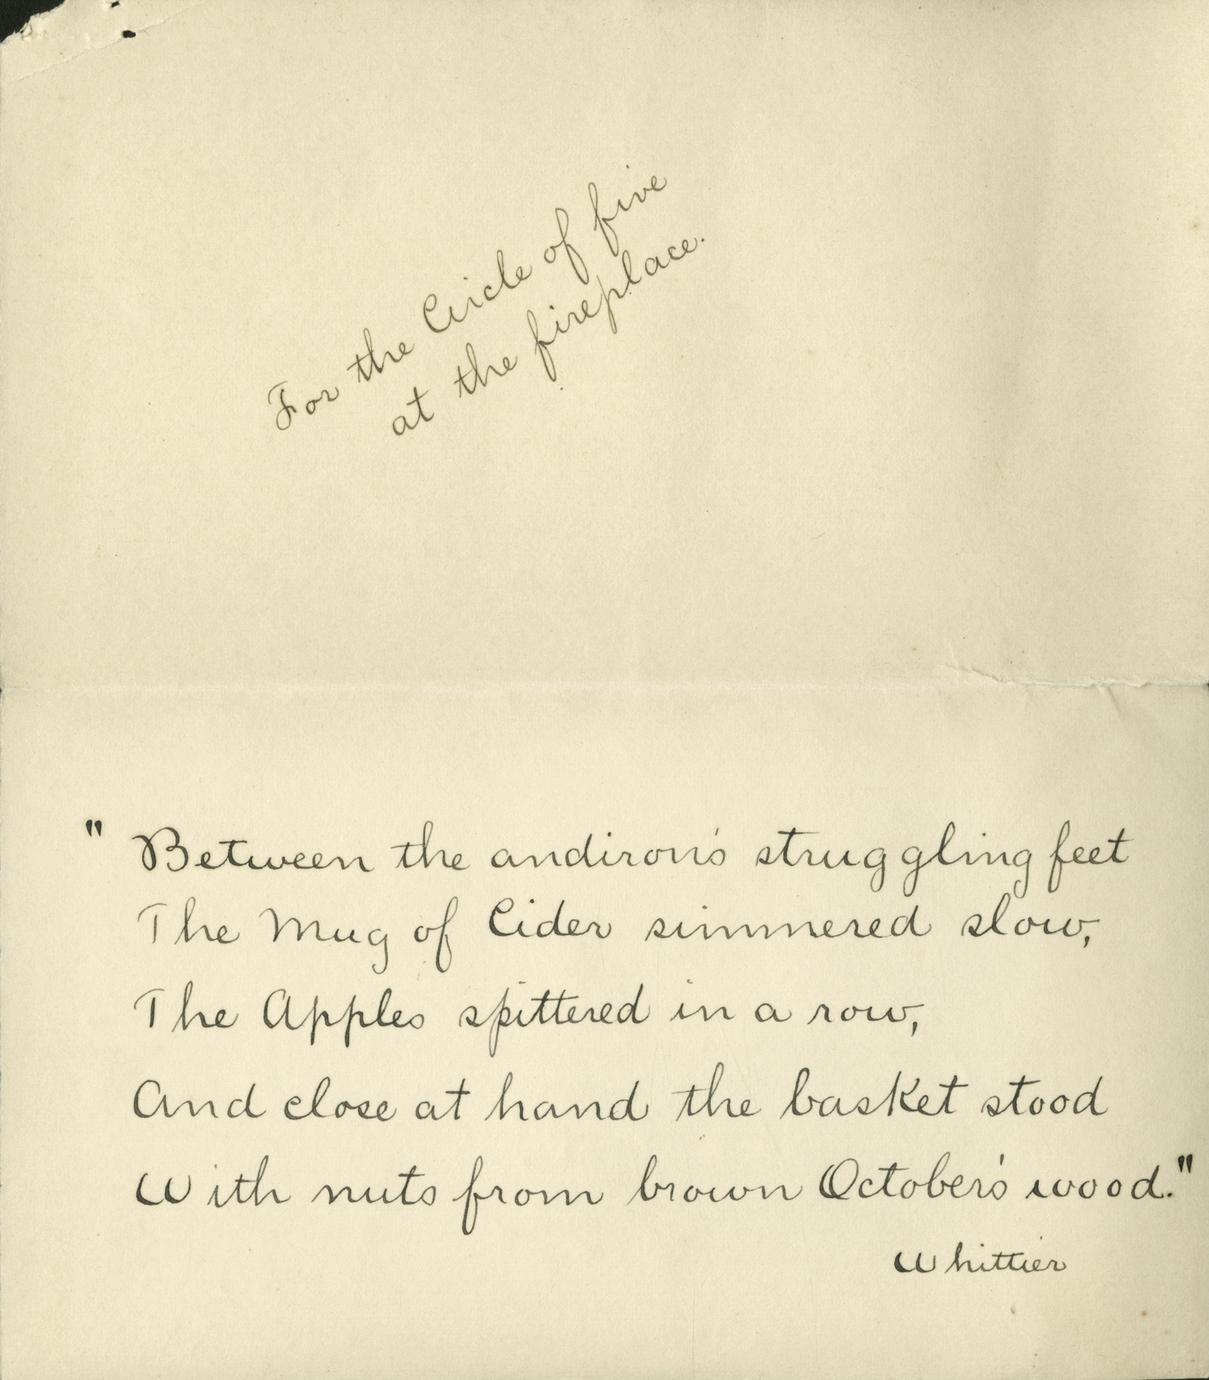 For the Circle of five
at the fireplace.
" Between the andiron's struggling feet
The Mug of Cider simmered slow,
The Apples spittered in a row,
And close at hand the basket stood
With nuts from brown October's wood."
Whittier